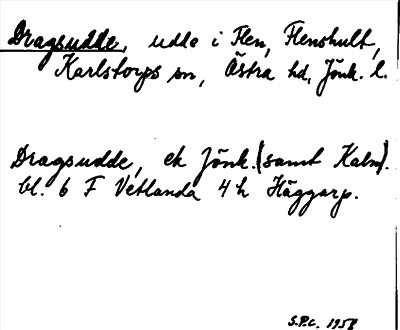 Dragsudde, udde i Flen, Flenshult,
Karlstorps sn, Östra hd, Jönk. l.
Dragsudde, ek Jönk. (samt Kalm).
bl. 6 F Vetlanda 4 h Häggarp.
S.P.C. 1958